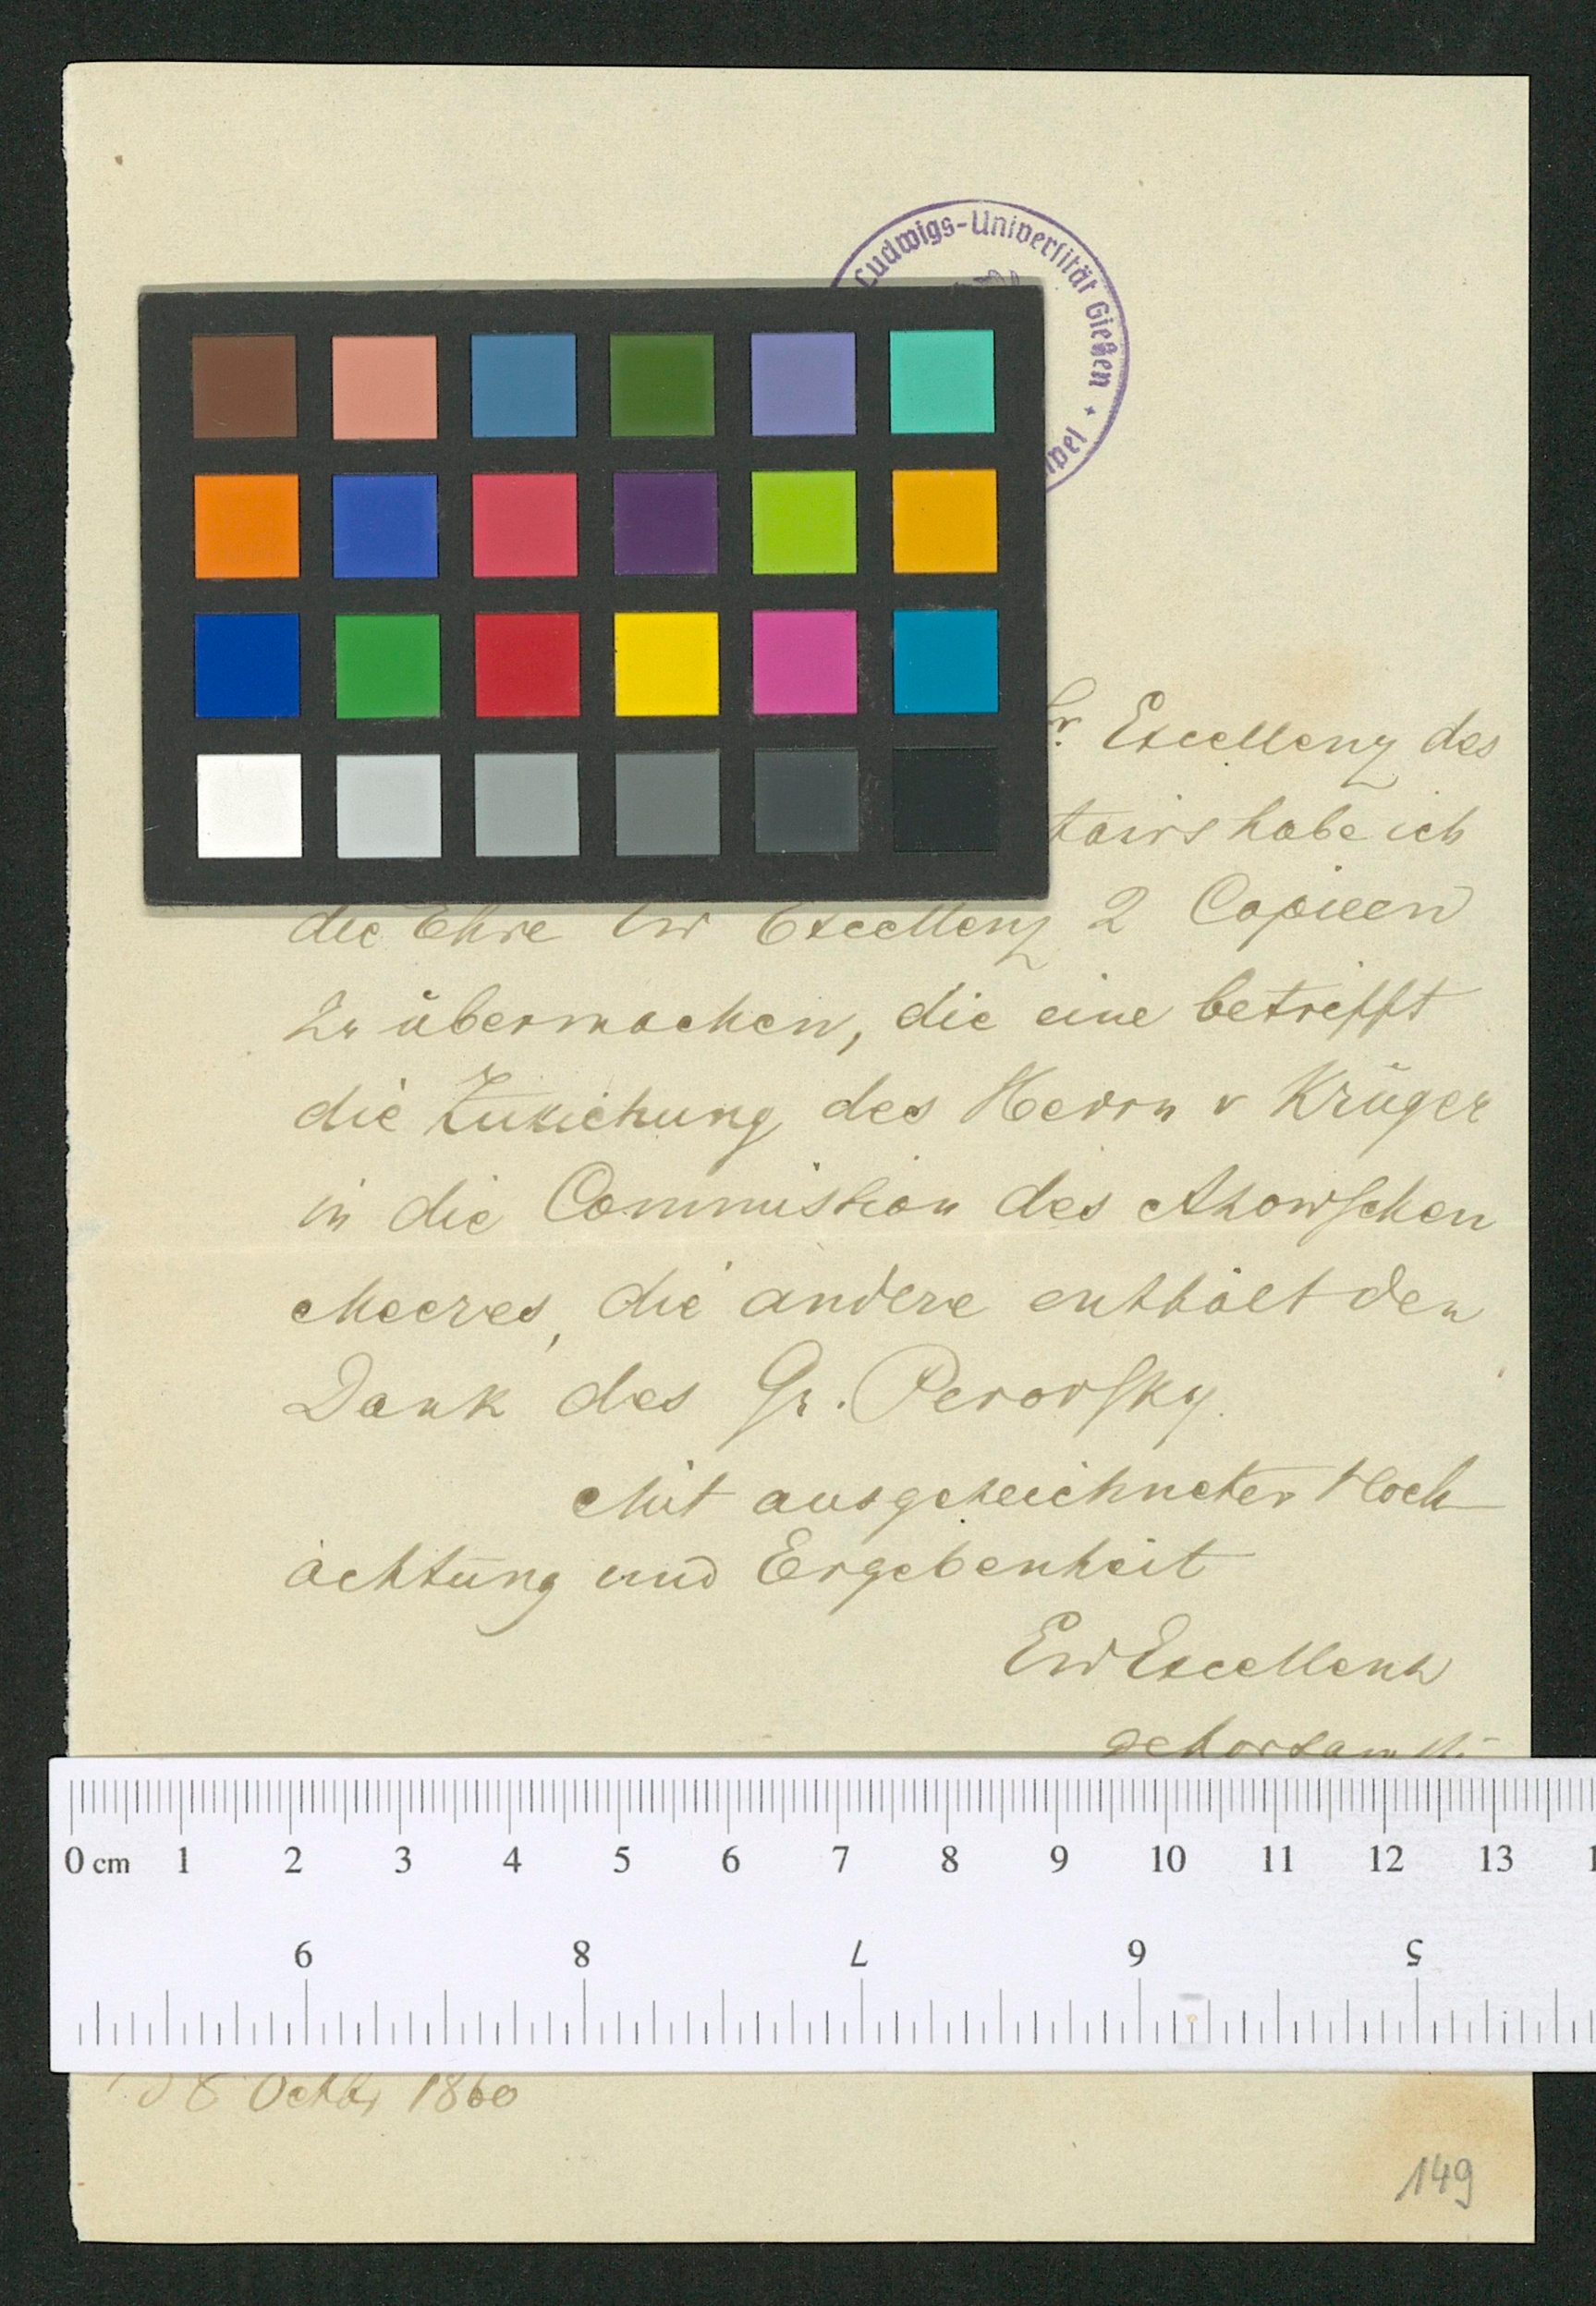 Ludwigs-Universität Gießen
Sr. Excellenz des
tairs habe ich
die Ehre Ew Excellenz 2 Copieen
zu übermachen, die eine betrifft
die Zuziehung des Herrn v Krüger
in die Commission des Azowschen
Meeres, die andere enthält den
Dank des Gr. Perovsky.
Mit ausgezeichneter Hoch
achtung und Ergebenheit
Ew Excellenz
gehorsamst
0 cm 1 2 3 4 5 6 7 8 9 10 11 12 13
9 8 7 6 5
8 Octbr 1860
149